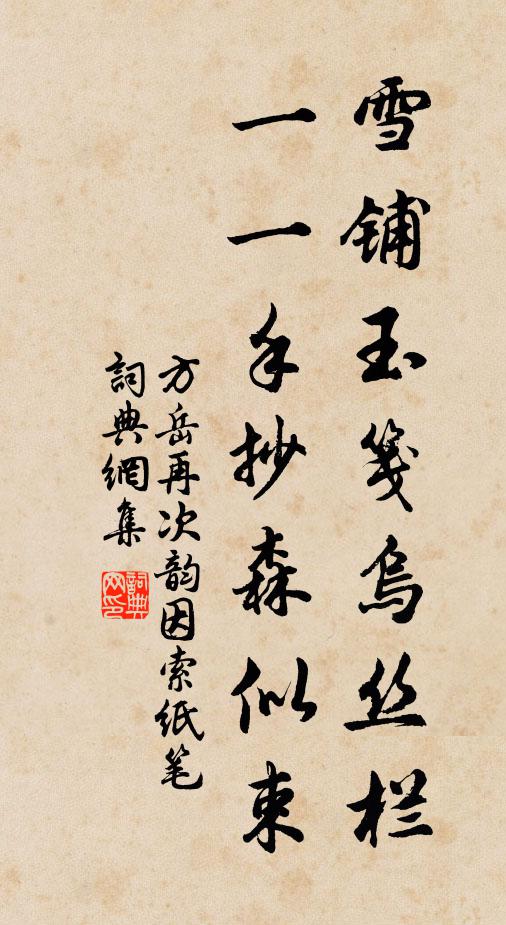 雪铺玉笺乌丝栏
一一手抄森似束
方岳再次韵因索纸笔
詞典網集
詞典网印